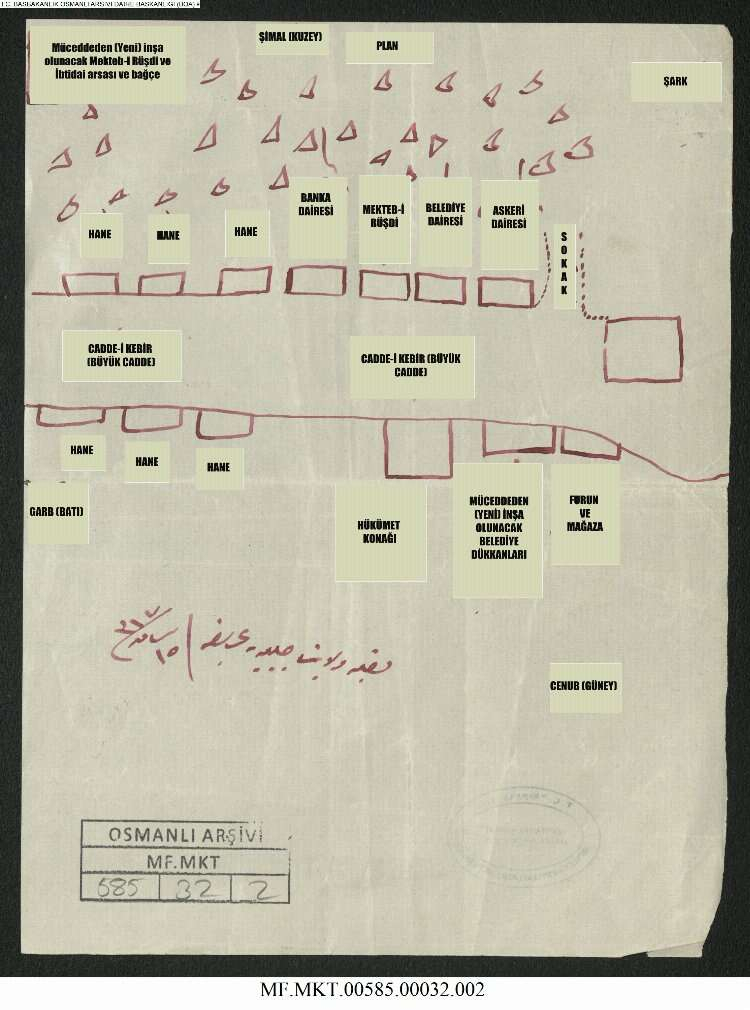 T.C. BAŞBAKANLIK OSMANLI ARŞİVİ DAİRE BAŞKANLIĞI (BOA)
Müceddeden (Yeni) inşa
olunacak Mekteb-i Rüşdi ve
İbtidai arsası ve bağçe
ŞİMAL (KUZEY)
PLAN
ŞARK
HANE
HANE
HANE
BANKA
DAİRESİ
MEKTEB-İ
RÜŞDİ
BELEDİYE
DAİRESİ
ASKERİ
DAİRESİ
SOKAK
CADDE-İ KEBİR
(BÜYÜK CADDE)
CADDE-İ KEBİR (BÜYÜK
CADDE)
HANE
HANE
HANE
GARB (BATI)
HÜKÜMET
KONAĞI
MÜCEDDEDEN
(YENİ) İNŞA
OLUNACAK
BELEDİYE
DÜKKANLARI
FURUN
VE
MAĞAZA
CENUB (GÜNEY)
OSMANLI ARŞİVİ
MF.MKT
585 32 2
MF.MKT.00585.00032.002